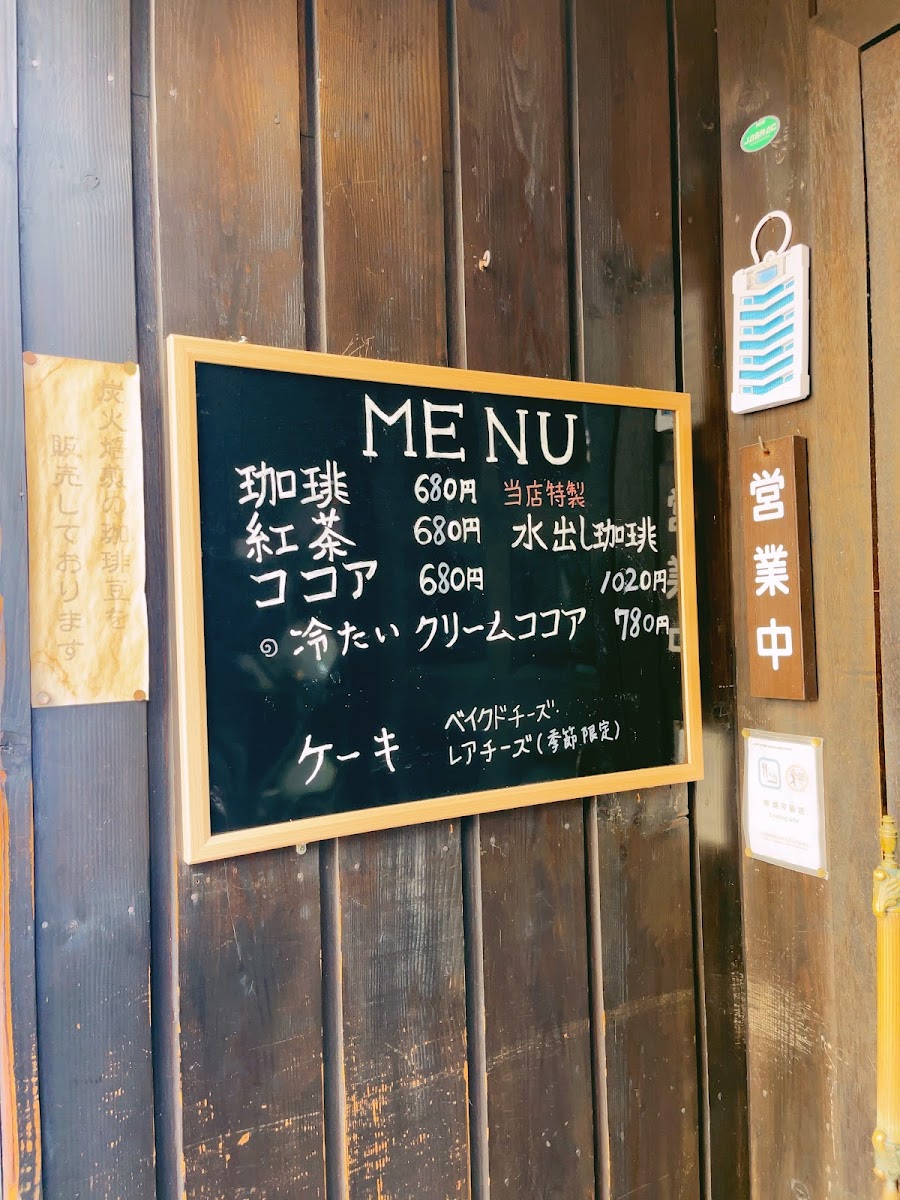 炭火焙煎の珈琲豆を
販売しております
MENU
珈琲 680円
紅茶 680円
ココア 680円
当店特製
水出し珈琲
1020円
冷たい クリームココア 780円
ケーキ
ベイクドチーズ
レアチーズ(季節限定)
営業中